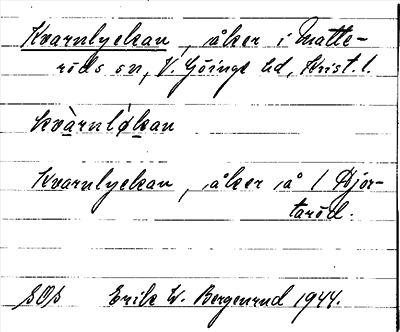 Kvarnlyckan, åker i Matte-
röds sn, V. Göinge hd, Krist. l.
kvàrnløkan
Kvarnlyckan, åker å 1 Hjor-
taröd.
Erik W. Bergenrud 1944.